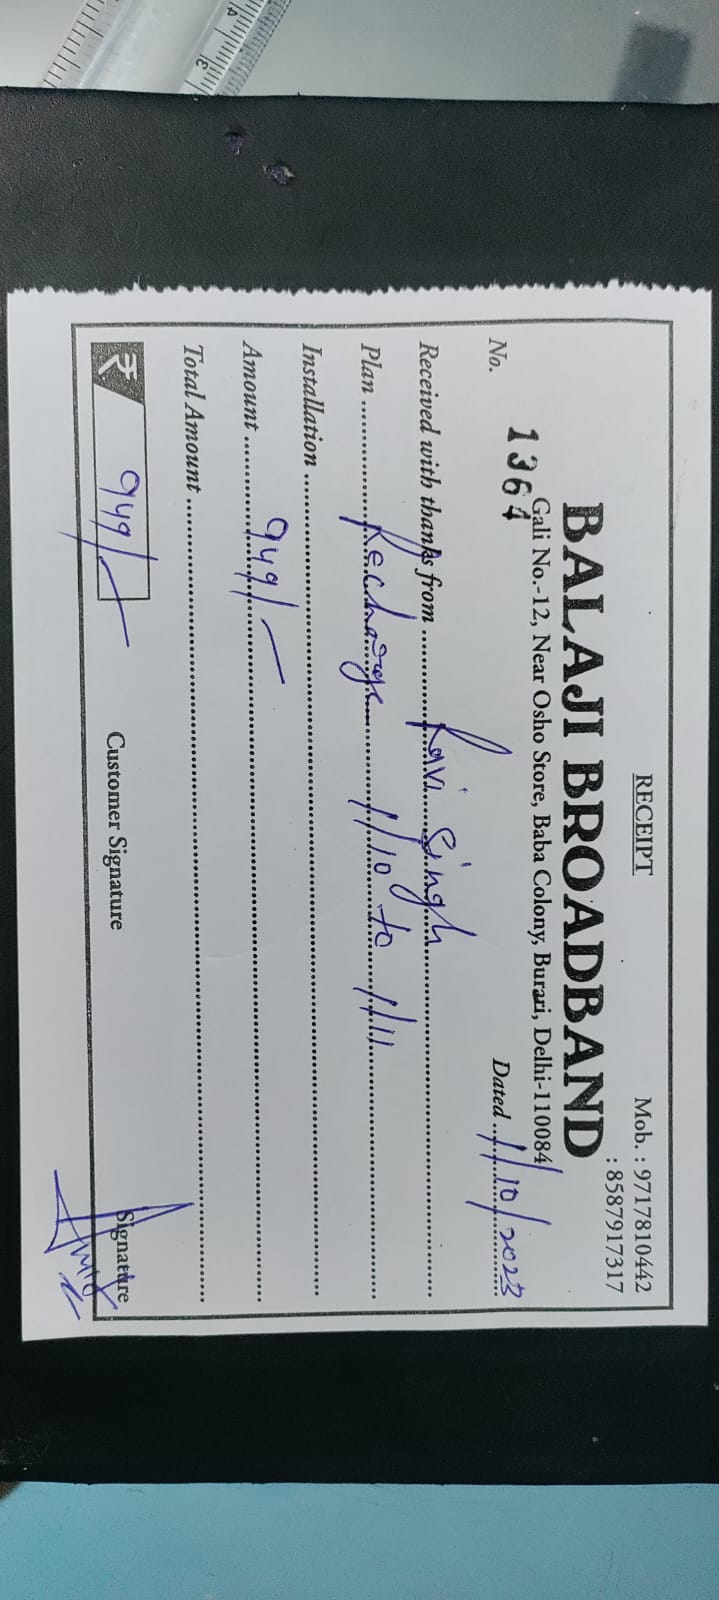 RECEIPT
Mob. : 9717810442
: 8587917317
BALAJI BROADBAND
Gali No.-12, Near Osho Store, Baba Colony, Burari, Delhi-110084
No. 1364
Dated 1/10/2023
Received with thanks from Ravi Singh
Plan Recharge 1/10 to 1/11
Installation
Amount 949/-
Total Amount
₹ 949/-
Customer Signature
Signature